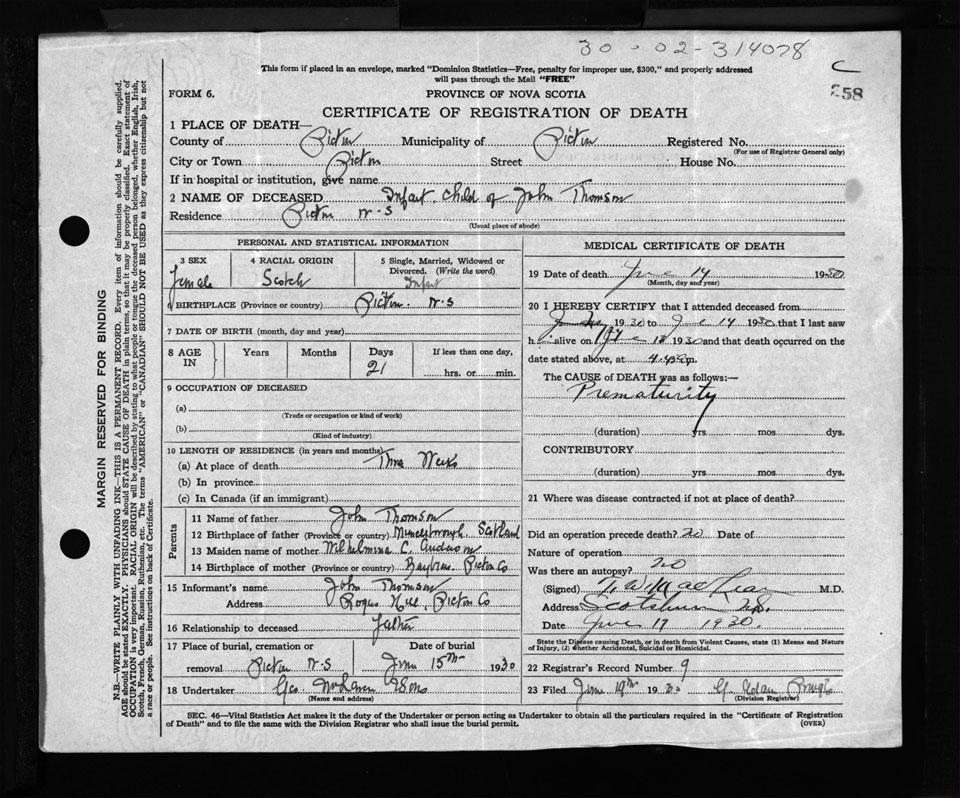 30-02-314078
This form if placed in an envelope, marked "Dominion Statistics—Free, penalty for improper use, $300," and properly addressed
will pass through the Mail "FREE"
C
258
FORM 6. PROVINCE OF NOVA SCOTIA
CERTIFICATE OF REGISTRATION OF DEATH
1 PLACE OF DEATH—
County of Pictou Municipality of Pictou Registered No.
(For use of Registrar General only)
City or Town Pictou Street House No.
If in hospital or institution, give name
2 NAME OF DECEASED Infant Child of John Thomson
Residence Pictou N.S
(Usual place of abode)
PERSONAL AND STATISTICAL INFORMATION
3 SEX 4 RACIAL ORIGIN 5 Single, Married, Widowed or
Divorced. (Write the word)
Female Scotch Infant
BIRTHPLACE (Province or country) Pictou. N.S
7 DATE OF BIRTH (month, day and year)
8 AGE IN Years Months Days If less than one day,
21 hrs. or min.
9 OCCUPATION OF DECEASED
(a)
(Trade or occupation or kind of work)
(b)
(Kind of industry)
10 LENGTH OF RESIDENCE (in years and months)
(a) At place of death Three Weeks
(b) In province
(c) In Canada (if an immigrant)
Parents
11 Name of father John Thomson
12 Birthplace of father (Province or country) Scotland
13 Maiden name of mother Wilhelmina C. Anderson
14 Birthplace of mother (Province or country) Pictou Co
15 Informant's name John Thomson
Address Rogers Hill, Pictou Co
16 Relationship to deceased Father
17 Place of burial, cremation or Date of burial
removal Pictou N.S June 15th 1930
18 Undertaker Geo. & Sons
(Name and address)
MEDICAL CERTIFICATE OF DEATH
19 Date of death June 14 1930
(Month, day and year)
20 I HEREBY CERTIFY that I attended deceased from
1930 to June 14 1930 that I last saw
h alive on 1930 and that death occurred on
date stated above, at m.
The CAUSE of DEATH was as follows:—
Prematurity
(duration) yrs. mos. dys.
CONTRIBUTORY
(duration) yrs. mos. dys.
21 Where was disease contracted if not at place of death?
Did an operation precede death? no Date of
Nature of operation
Was there an autopsy? no
(Signed) M.D.
Address Scotsburn N.S.
Date June 17 1930.
State the Disease causing Death, or in Death from Violent Causes, state (1) Means and Nature
of Injury, (2) whether Accidental, Suicidal or Homicidal.
22 Registrar's Record Number 9
23 Filed June 19th 1930 G. Adam
(Division Registrar)
SEC. 46—Vital Statistics Act makes it the duty of the Undertaker or person acting as Undertaker to obtain all the particulars required in the "Certificate of Registration
of Death" and to file the same with the Division Registrar who shall issue the burial permit. (OVER)
MARGIN RESERVED FOR BINDING
N.B.—WRITE PLAINLY WITH UNFADING INK—THIS IS A PERMANENT RECORD. Every item of information should be carefully supplied.
AGE should be stated EXACTLY. PHYSICIANS should STATE CAUSE OF DEATH in plain terms, so that it may be properly classified. Exact statement of
OCCUPATION is very important. RACIAL ORIGIN will be described by stating to what people or tongue the deceased person belonged, whether English, Irish,
Scotch, French, German, Russian, Ruthenian, etc. The terms "AMERICAN" or "CANADIAN" SHOULD NOT BE USED as they express citizenship but not
a race or people. See instructions on back of Certificate.